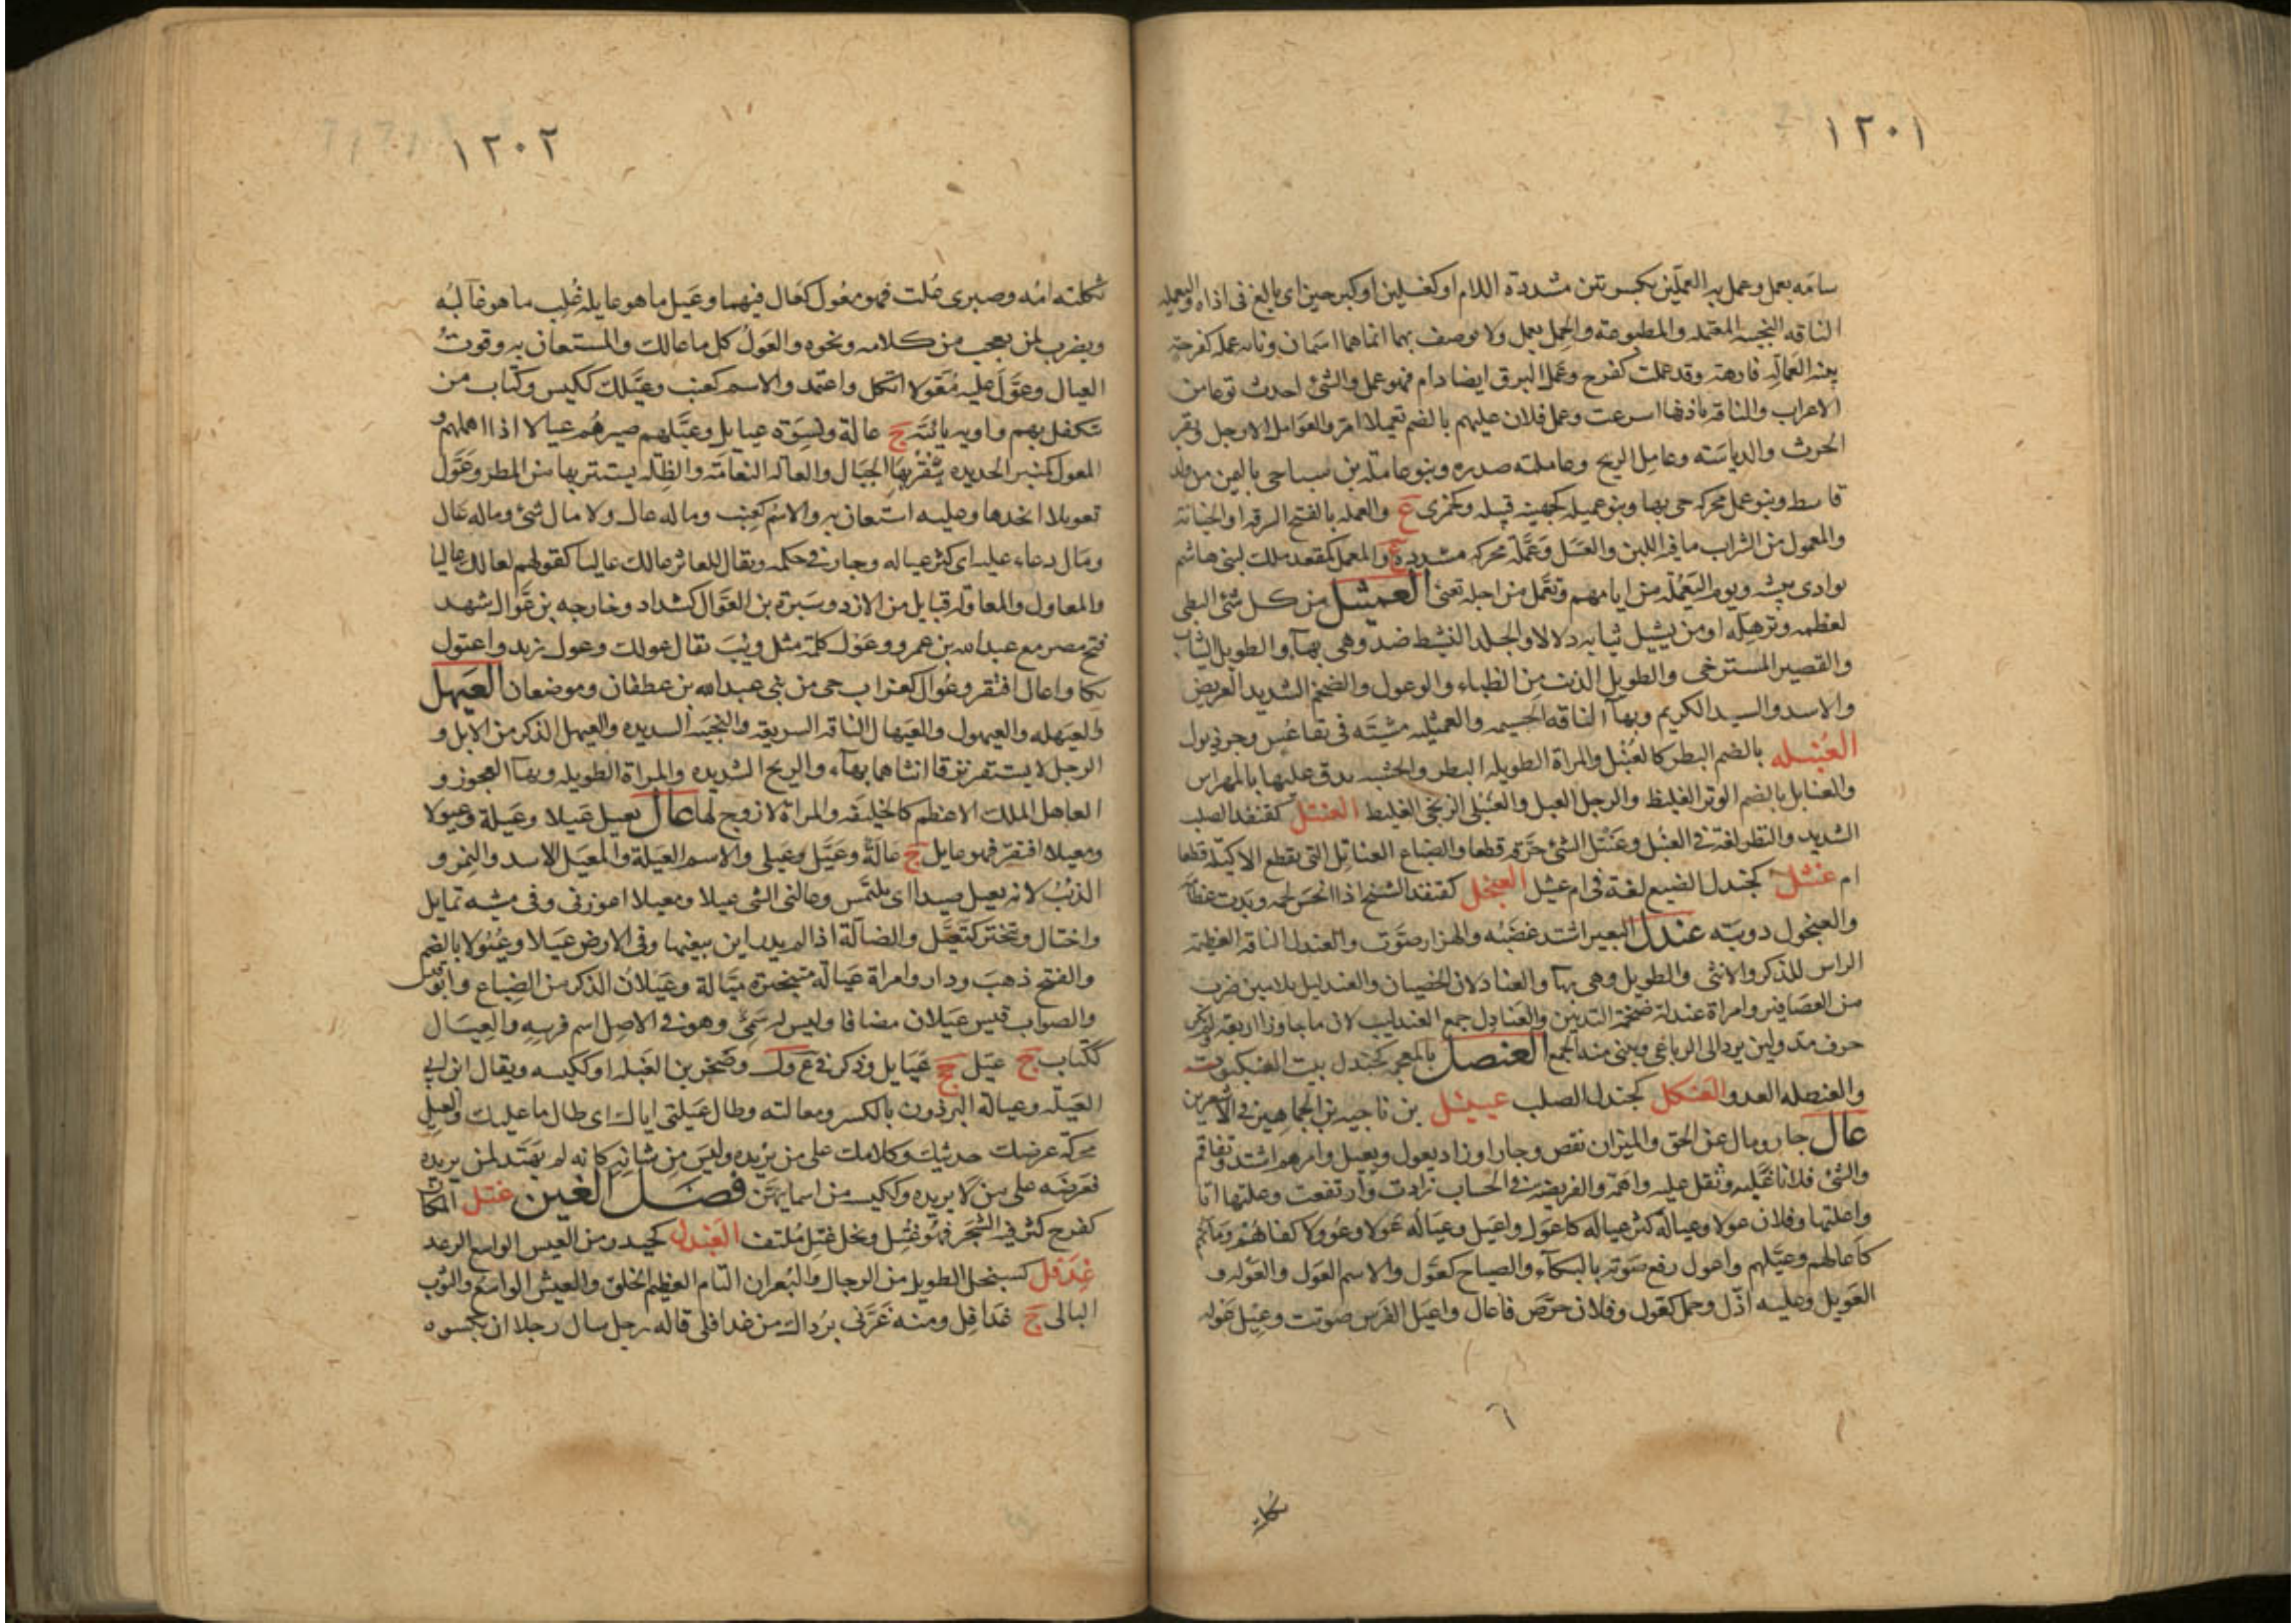 ١٢٠١
سامه يعمل وعمل به العملين بكسرتين مشددة اللام او كغسلين او كبرحين اى بالغ فى اذاه واليعمله
الناقه النجيبه المعتمله والمطبوعة والجمل يعمل ولا يوصف بهما انما هما اسمان وناقه عمله كفرحة
بينه العماله فارهة وقد عملت كفرح وعمل البرق ايضا دام فهو عمل والشئ احدث نوعا من
الاعراب والناقة باذنها اسرعت وعمل فلان عليهم بالضم تعميلا امر والعوامل الارجل وبقر
الحرث والدياسته وعامل الريح وعاملته صدره وبنو عاملة بن سبا حى باليمن من ولد
قاسط وبنو عمل محركه حى بها وبنو عميله كجهينه قبيله وكخزى ع والعمله بالفتح السرقه او الخيانة
والمعمول من الشراب ما فيه اللبن والعسل وعملة محركه مشددة ع والمعمل كمقعد ملك لبنى هاشم
بوادى بيشه ويوم اليعمله من ايامهم وتعمل من اجله تعنى العميثل من كل شئ البطى
لعظمه وترهله او من يسبل ثيابه دلالا والجلد النشط ضد وهى بهاء والطويل الثياب
والقصير المسترخى والطويل الذنب من الظباء والوعول والضخم الشديد العريض
والاسد والسيد الكريم وبهاء الناقه الجسيمه والعميثليه مشيته فى تقاعس وجر ذيول
العنبله بالضم البظر كالعنبل والمراة الطويله البظر والخشبه يدق عليها بالمهراس
والعنابل بالضم الوتر الغليظ والرجل العبل والعنبلى الزنجى الغليظ العنتل كقنفذ الصلب
الشديد والبظر لغة فى العنبل وعنتل الشئ خرقه قطعا والضباع العناتل التى تقطع الاكيلة قطعا
ام عنثل كجندل الضبع لغة فى ام عثيل العنجل كقنفذ الشيخ اذا انحسر لحمه وبدت عظامه
والعنجول دويبة عندل البعير اشتد غضبه والهزار صوت والعندل الناقه العظيمة
الراس للذكر والانثى والطويل وهى بهاء والعنادلان الخصيان والعندليل بلامين ضرب
من العصافير وامراة عندلة ضخمة الثديين والعنادل جمع العندليب لان ما جاوز اربعه ولم يكن
حرف مد ولين يرد الى الرباعى ويبنى منه الجمع العنصل بالمعجمه كجندل بيت العنكبوت
والعنصله العدو العنكل كجندل الصلب عينثل بن ناجيه بن الجماهير فى الاشعرين
عال جار ومال عن الحق والميزان نقص وجار او زاد يعول ويعيل وامرهم اشتد وتفاقم
والشئ فلانا غلبه وثقل عليه واهمه والفريضه فى الحساب زادت وارتفعت وعلتها انا
واعلتها وفلان عولا وعياله كثر عياله كاعول واعيل وعياله عولا وعؤولا كفاهم ومانهم
كاعالهم وعيلهم واعول رفع صوته بالبكاء والصياح كعول والاسم العول والعوله و
العويل وعليه ادل وحمل كعول وفلان حرص فاعال واعيل الفرس صوتت وعيل عوله
ثكلته
١٢٠٢
ثكلته امه وصبرى غلب فهو معول كعال فيهما وعيل ما هو عايله غلب ما هو غالبه
ويضرب لمن يعجب من كلامه ونحوه والعول كل ما عالك والمستعان به وقوت
العيال وعول عليه معولا اتكل واعتمد والاسم كعنب وعيلك ككيس وكتاب من
تتكفل بهم واويه يائية ج عالة ونسوة عيايل وعيلهم صيرهم عيالا اذا اهملهم و
المعول كمنبر الحديده ينقر بها الجبال والعاله النعامة والظله يستتر بها من المطر وعول
تعويلا اتخذها وعليه استعان به والاسم كعنب وما له عال ولا مال شئ وماله عال
ومال دعاء عليه اى كثر عياله وجار فى حكمه ويقال للعاثر عالك عاليا كقولهم لعا لك عاليا
والمعاول والمعاولة قبايل من الازد وسبرة بن العوال كشداد وخارجه بن عوال شهد
فتح مصر مع عبد الله بن عمرو وعول كلمة مثل ويب يقال عولك وعول زيد واعتول
بكا واعال افتقر وعوال كغراب حى من بنى عبد الله بن غطفان وموضعان العيهل
والعيهله والعيهول والعيهال الناقه السريعه والنجيبه الشديده والعيهل الذكر من الابل و
الرجل لا يستقر نزقا انثاهما بهاء والريح الشديده والمراة الطويله وبهاء العجوز و
العاهل الملك الاعظم كالخليفه والمراة لا زوج لها عال يعيل عيلا وعيلة وعيولا
ومعيلا افتقر فهو عايل ج عالة وعيل وعيلى والاسم العيلة والمعيل الاسد والنمر و
الذئب لانه يعيل صيدا اى يلتمس وعالنى الشى عيلا ومعيلا اعوزنى وفى مشيه تمايل
واختال وتبختر كتعيل والضالة اذا لم يدر اين يبغيها وفى الارض عيلا وعيولا بالضم
والفتح ذهب ودار وامراة عيالة متبخترة ميالة وعيلان الذكر من الضباع وابو قيس
والصواب قيس عيلان مضافا وليس له سمى وهو فى الاصل اسم فرسه والعيال
ككتاب ج عيل جج عيايل وذكر فى ع ول وصخر بن العيله او ككيسه ويقال ابن ابى
العيله وعيالة البرذون بالكسر ومعالته وطال عيلتى اياك اى طال ما علتك والعيل
محركة عرضك حديثك وكلامك على من يريده وليس من شانه كانه لم يهتد لمن يريده
فعرضه على من لا يريده وككيسه من اسمايهن فصل الغين غتل المكان
كفرح كثر فيه الشجر فهو غتل ونخل غتل ملتف الغيدل كحيدر من العيش الواسع الرغد
غدفل كسبحل الطويل من الرجال والبعران التام العظيم الخلق والعيش الواسع والثوب
البالى ج غدافل ومنه غرنى برداك من غدافلى قاله رجل سال رجلا ان يكسوه